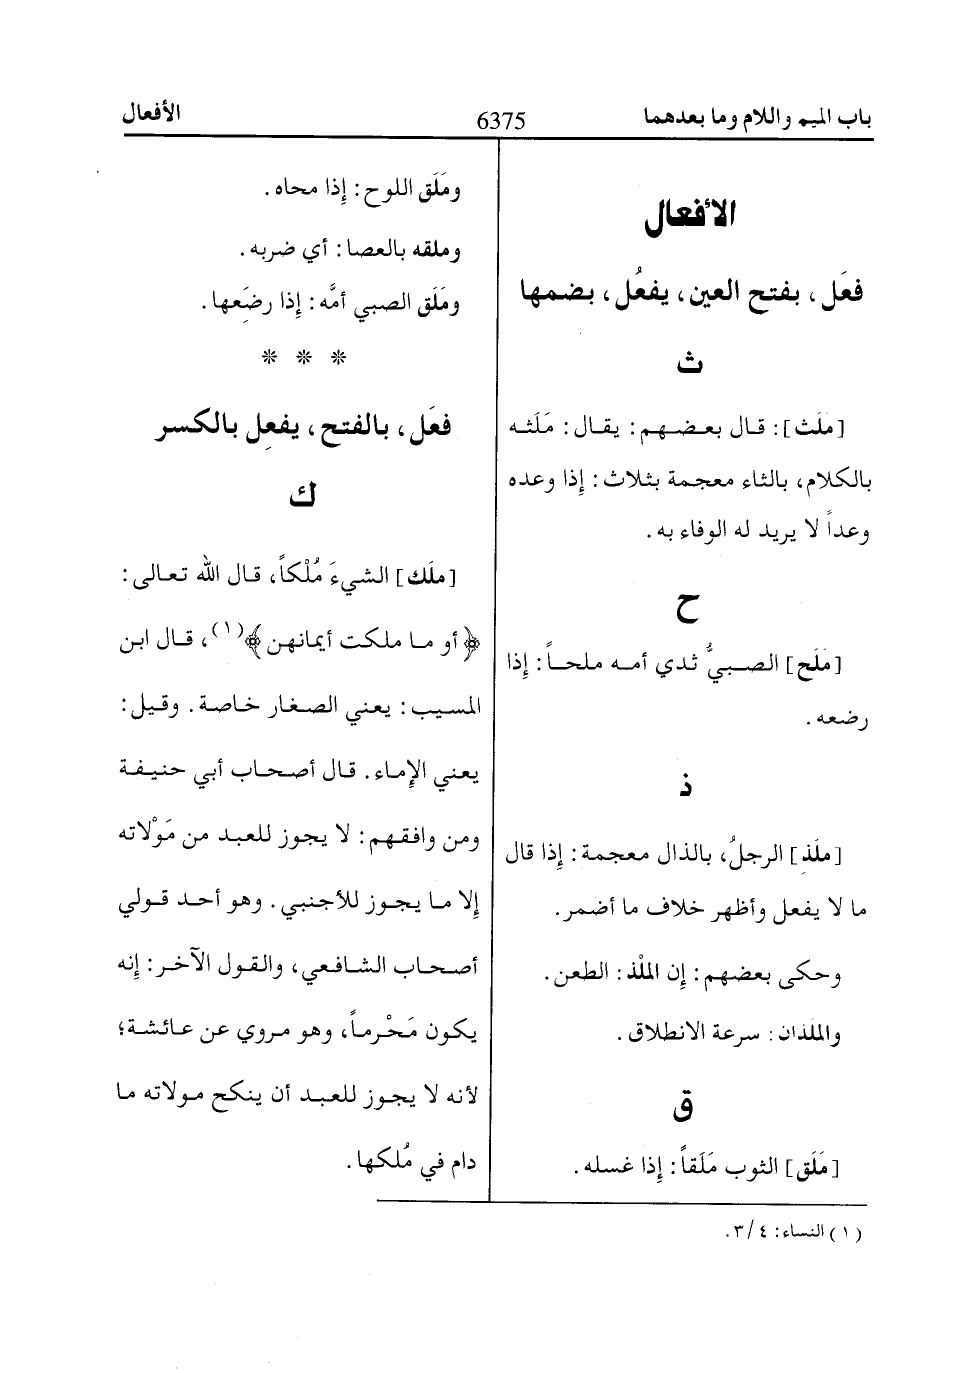 باب الميم واللام وما بعدهما
6375
الأفعال
الأفعال
فعَل، بفتح العين، يفعُل، بضمها
ث
[ملَث]: قال بعضهم: يقال: مَلَثه
بالكلام، بالثاء معجمة بثلاث: إذا وعده
وعداً لا يريد له الوفاء به.
ح
[مَلَح] الصبيُّ ثدي أمه ملحاً: إذا
رضعه.
ذ
[ملَذ] الرجلُ، بالذال معجمة: إذا قال
ما لا يفعل وأظهر خلاف ما أضمر.
وحكى بعضهم: إن الملْذ: الطعن.
والملذان: سرعة الانطلاق.
ق
[مَلَق] الثوب مَلَقاً: إذا غسله.
ومَلَق اللوح: إذا محاه.
وملقه بالعصا: أي ضربه.
ومَلَق الصبي أمَّه: إذا رضَعها.
* * *
فعَل، بالفتح، يفعِل بالكسر
ك
[ملَك] الشيءَ مُلْكاً، قال الله تعالى:
﴿أو ما ملكت أيمانهن﴾(١)، قال ابن
المسيب: يعني الصغار خاصة. وقيل:
يعني الإماء. قال أصحاب أبي حنيفة
ومن وافقهم: لا يجوز للعبد من مَوْلاته
إلا ما يجوز للأجنبي. وهو أحد قولي
أصحاب الشافعي، والقول الآخر: إنه
يكون مَحْرماً، وهو مروي عن عائشة؛
لأنه لا يجوز للعبد أن ينكح مولاته ما
دام في مُلكها.
(١) النساء: ٤/٣.